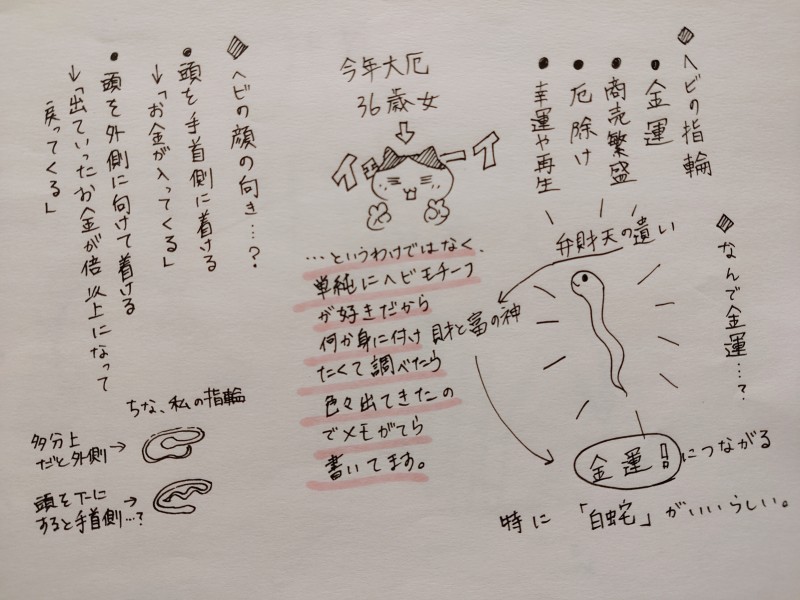 ◆ヘビの指輪
● 金運
● 商売繁盛
● 厄除け
● 幸運や再生
◆なんで金運…?
弁財天の遣い
財と富の神
金運!!
につながる
特に「白蛇」がいいらしい。
今年大厄
36歳女
↓
イェーイ
…というわけではなく、
単純にヘビモチーフ
が好きだから
何か身に付け
たくて調べたら
色々出てきたの
でメモがてら
書いてます。
◆ヘビの顔の向き…?
● 頭を手首側に着ける
↓「お金が入ってくる」
● 頭を外側に向けて着ける
↓「出ていったお金が倍以上になって
戻ってくる」
ちな、私の指輪
多分上
だと外側→
頭を下に
すると手首側…?
→